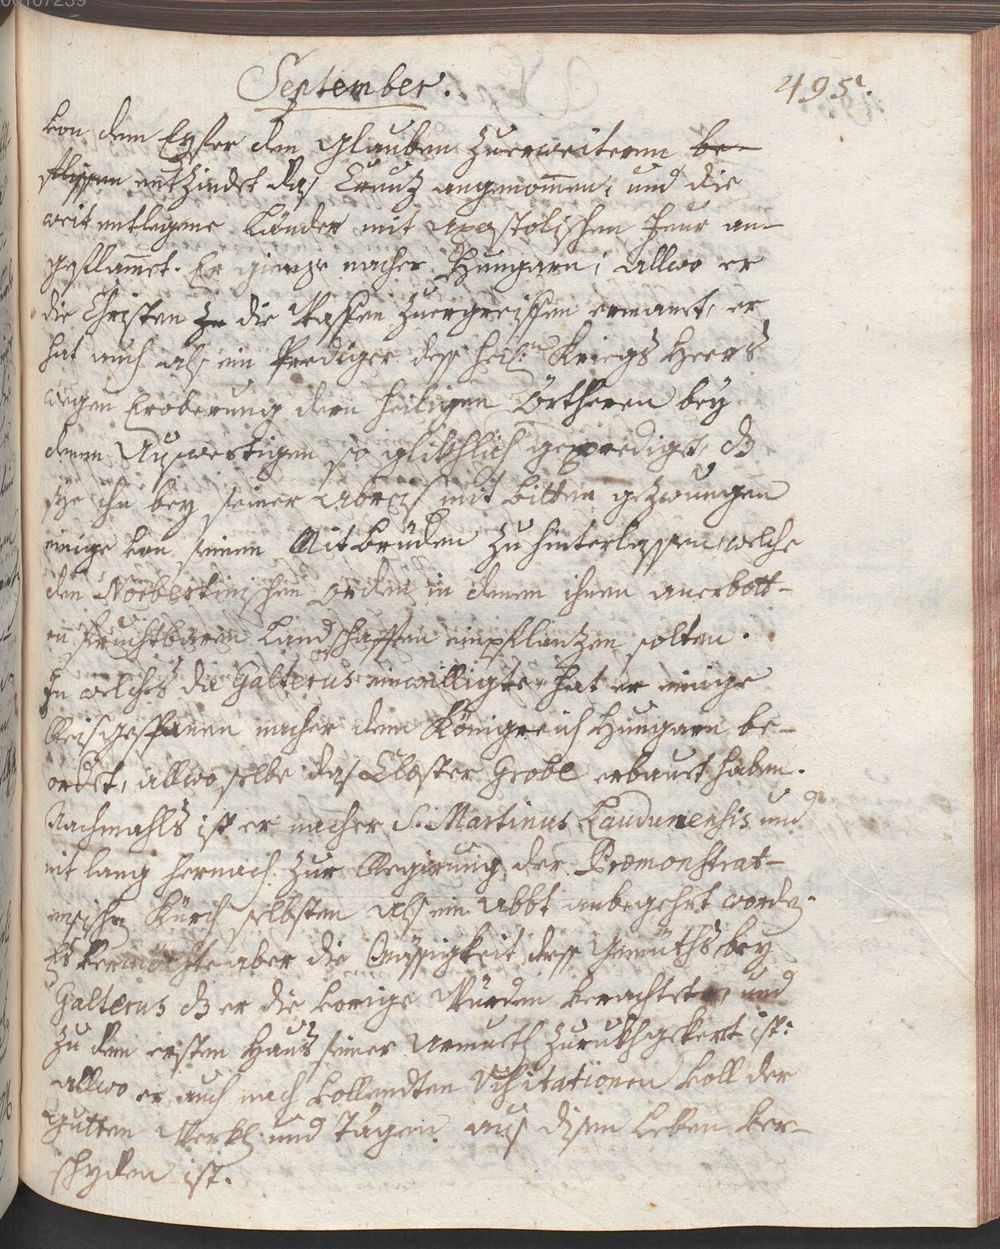 00107239
September.
495.
von dem Eyfer den glauben zuerweiteren be-
flissen entzindet das Creutz angenommen, und die
weit entlegene Länder mit apostolischen feur an-
geflammet. Er gienge nacher Hungarn, allwo er
die Christen zu die Waffen zuergreiffen ermant, er
hat auch als ein Prediger dess heil: Kriegs Heers
wegen Eroberung dern heiligen Örtheren bey
denen Auswertigen so glikhlich geprediget, dz
sye ihn bey seiner abreis mit bitten gezwungen
einige von seinen Mitbrüden zu hinterlassen welche
den Norbertinischen orden in denen ihnen anerbott-
en fruchtbaren Landschafften einpflantzen solten.
In welches da Galterus einwilligte, hat er einige
Reisgespanen nacher dem Königreich Hungarn be-
ordet, allwo selbe das Closter Grobe erbauet haben.
Nachmahls ist er nacher S. Martinus Laudunensis und
nit lang hernach zur Regirung der Praemonstrat-
ensischen Kürch selbsten als ein Abbt anbegehrt worden.
Es vermochte aber die Mässigkeit dess Gemüths bey
Galterus dz er die vorige Würden verachtet, und
zu dem ersten Haus seiner armuth zurukhgekert ist:
allwo er auch nach vollendten Visitationen voll der
gutten Werkh und Tägen aus disem Leben ver-
schyden ist.